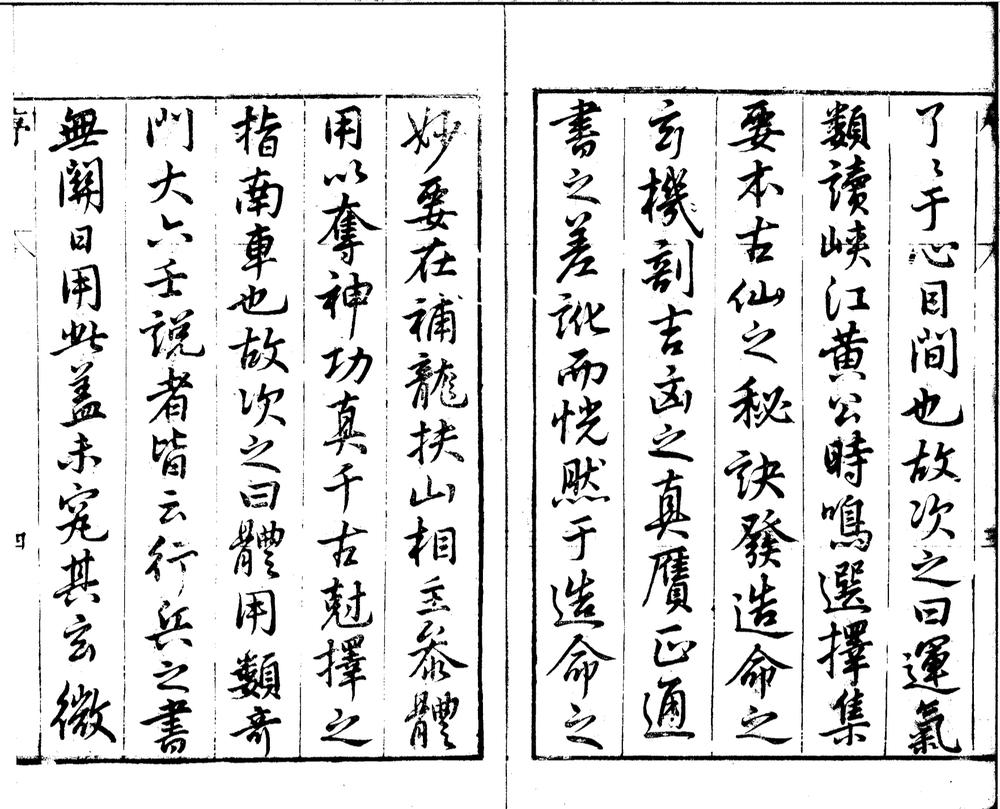 了〻于心目間也故次之曰運氣
類讀峽江黄公時鳴選擇集
要本古仙之秘訣發造命之
玄機剖吉凶之真贋正通
書之差訛而恍然于造命之
妙要在補龍扶山相主叅體
用以奪神功真千古尅擇之
指南車也故次之曰體用類奇
門大六壬説者皆云行兵之書
無關日用此盖未究其玄微
序
四